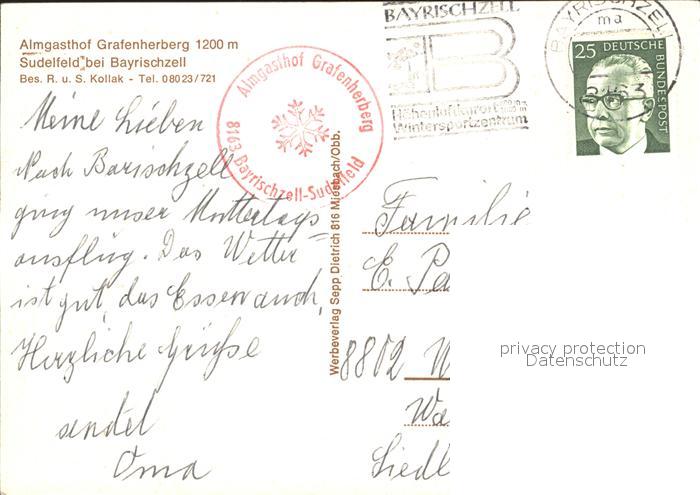 Almgasthof Grafenherberg 1200 m
Sudelfeld bei Bayrischzell
Bes. R. u. S. Kollak - Tel. 08023/721
Almgasthof Grafenherberg
8163 Bayrischzell-Sudelfeld
BAYRISCHZELL
B
Höhenluftkurort
Wintersportzentrum
BAYRISCHZELL
ma
25 DEUTSCHE
BUNDESPOST
Meine Lieben
Nach Barischzell
ging unser Muttertags-
ausflug. Das Wetter
ist gut, das Essen auch,
Herzliche Grüße
sendet
Oma
Werbeverlag Sepp Dietrich 816 Miesbach/Obb.
Familie
E. Pa
8802 W
Wa
Siedl
privacy protection
Datenschutz